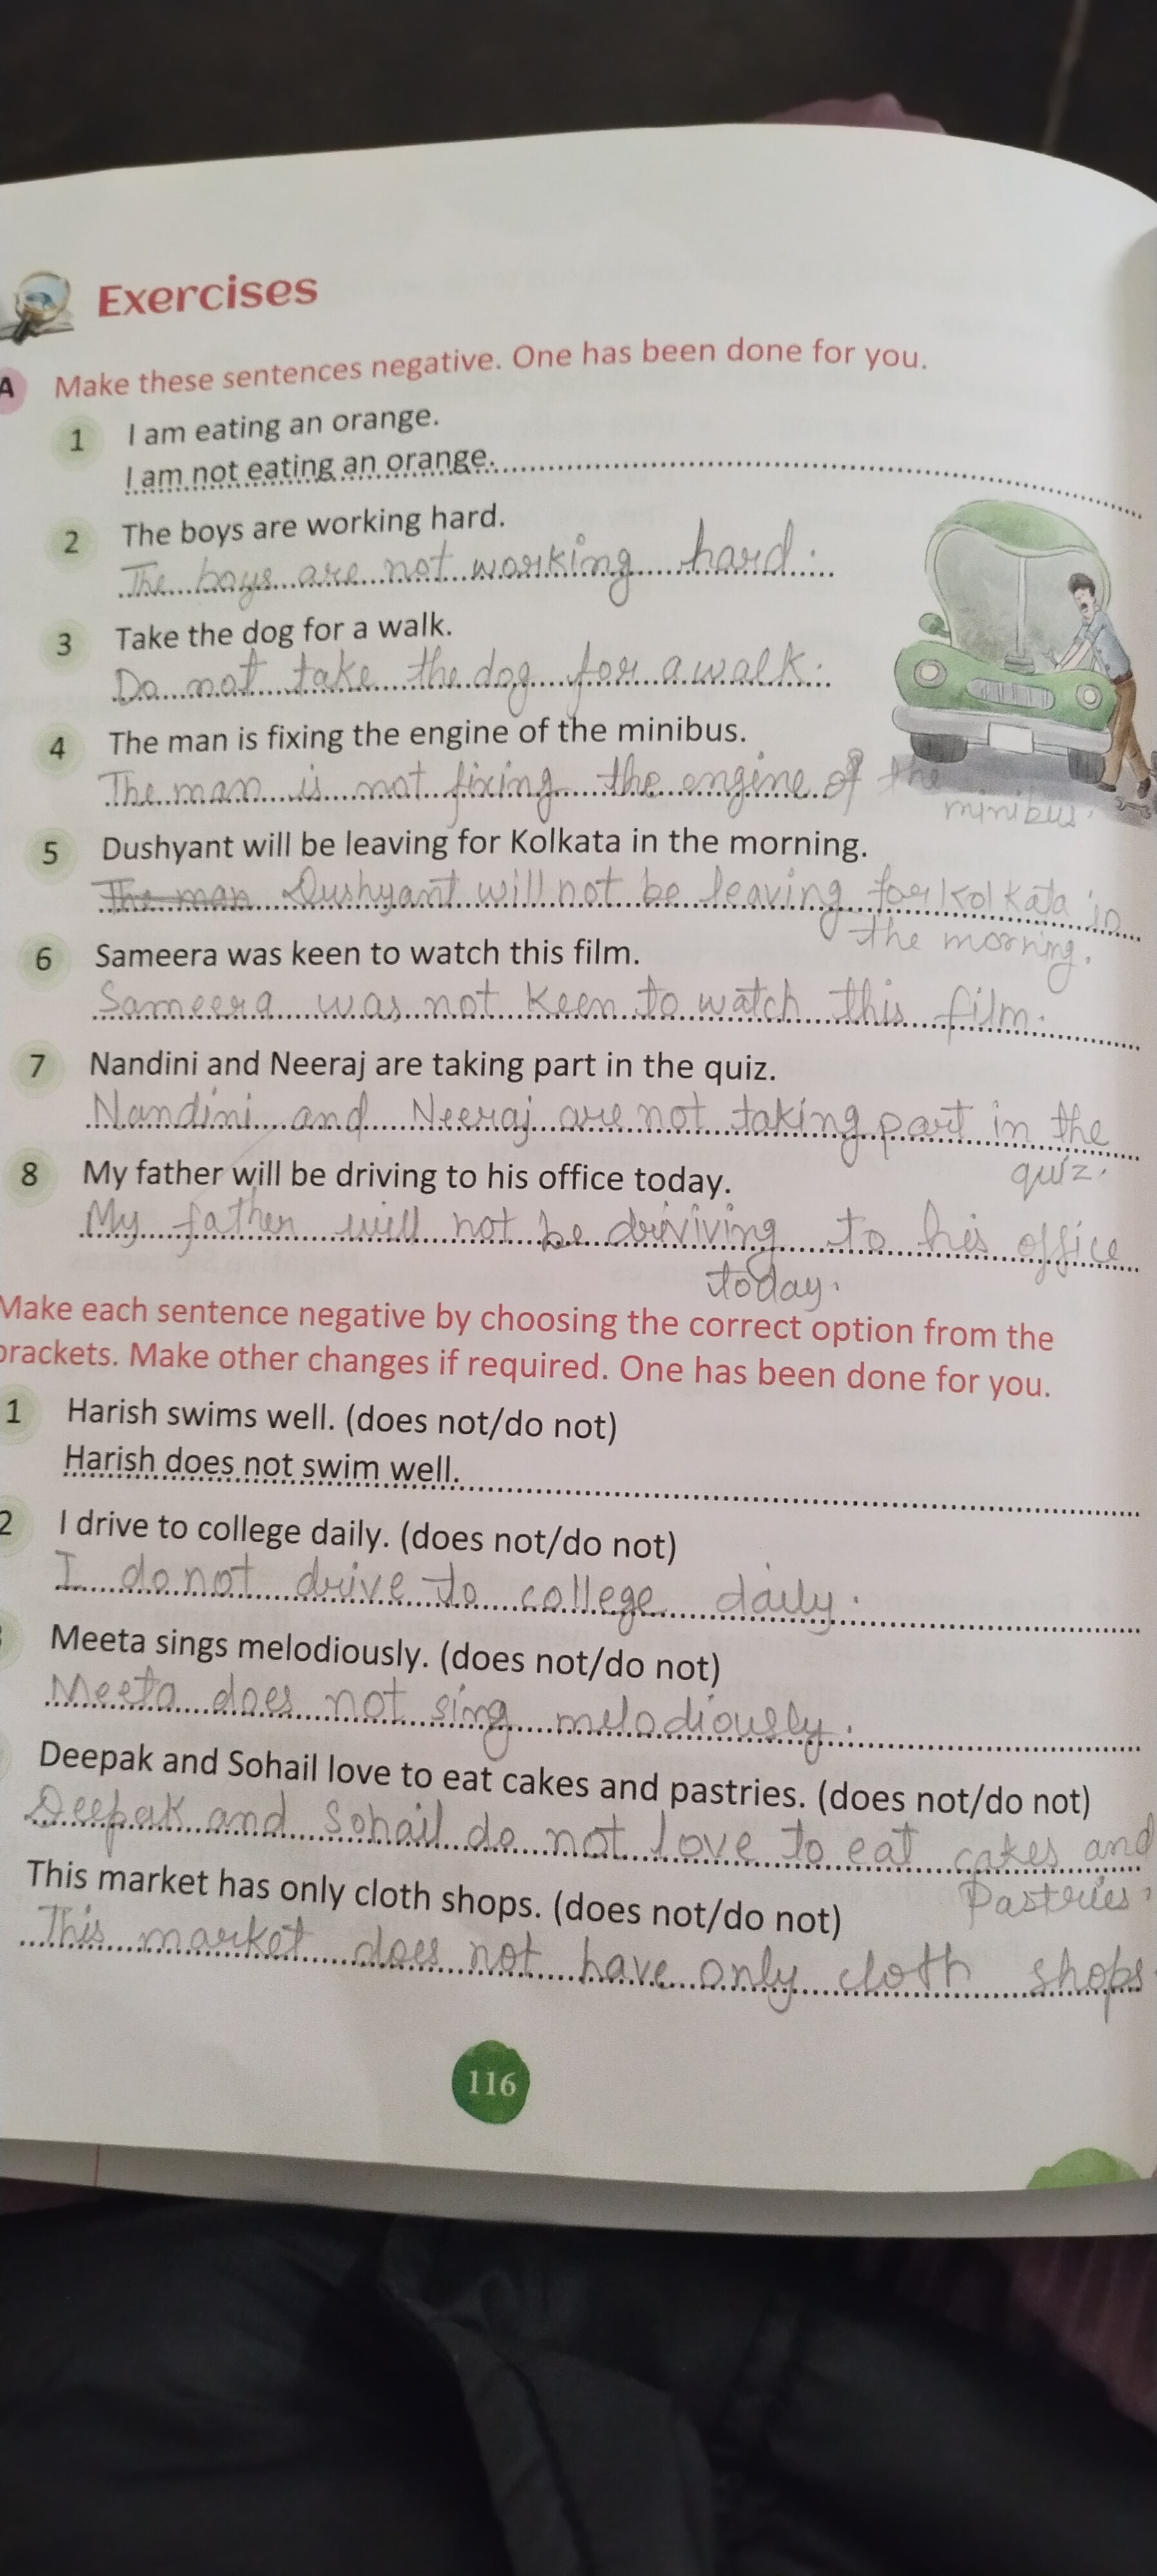 Exercises
A Make these sentences negative. One has been done for you.
1 I am eating an orange.
I am not eating an orange.
2 The boys are working hard.
The boys are not working hard.
3 Take the dog for a walk.
Do not take the dog for a walk.
4 The man is fixing the engine of the minibus.
The man is not fixing the engine of the
minibus.
5 Dushyant will be leaving for Kolkata in the morning.
The man Dushyant will not be leaving for Kolkata in
the morning.
6 Sameera was keen to watch this film.
Sameera was not keen to watch this film.
7 Nandini and Neeraj are taking part in the quiz.
Nandini and Neeraj are not taking part in the
quiz.
8 My father will be driving to his office today.
My father will not be driviving to his office
today.
Make each sentence negative by choosing the correct option from the
brackets. Make other changes if required. One has been done for you.
1 Harish swims well. (does not/do not)
Harish does not swim well.
2 I drive to college daily. (does not/do not)
I do not drive to college daily.
Meeta sings melodiously. (does not/do not)
Meeta does not sing melodiously.
Deepak and Sohail love to eat cakes and pastries. (does not/do not)
Deepak and Sohail do not love to eat cakes and
Pastries.
This market has only cloth shops. (does not/do not)
This market does not have only cloth shops
116